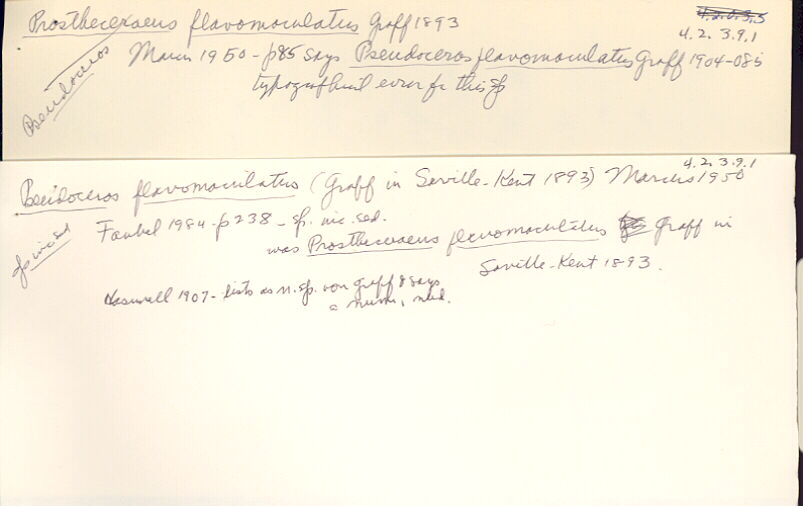 Prosthecereaeus flavomaculatus Graff 1893
4.2.6.3.5
4.2.3.9.1
Pseudoceros
Marcus 1950 - p85 says Pseudoceros flavomaculatus Graff 1904-08 is
typografical error for this sp
4.2.3.9.1
Pseudoceros flavomaculatus (Graff in Saville-Kent 1893) Marcus 1950
sp inc sed
Faubel 1984 - p238 - sp. inc. sed.
was Prosthecereaeus flavomaculatus Graff in
Saville-Kent 1893.
Haswell 1907 - lists as n. sp. von Graff & says
a num, nud.